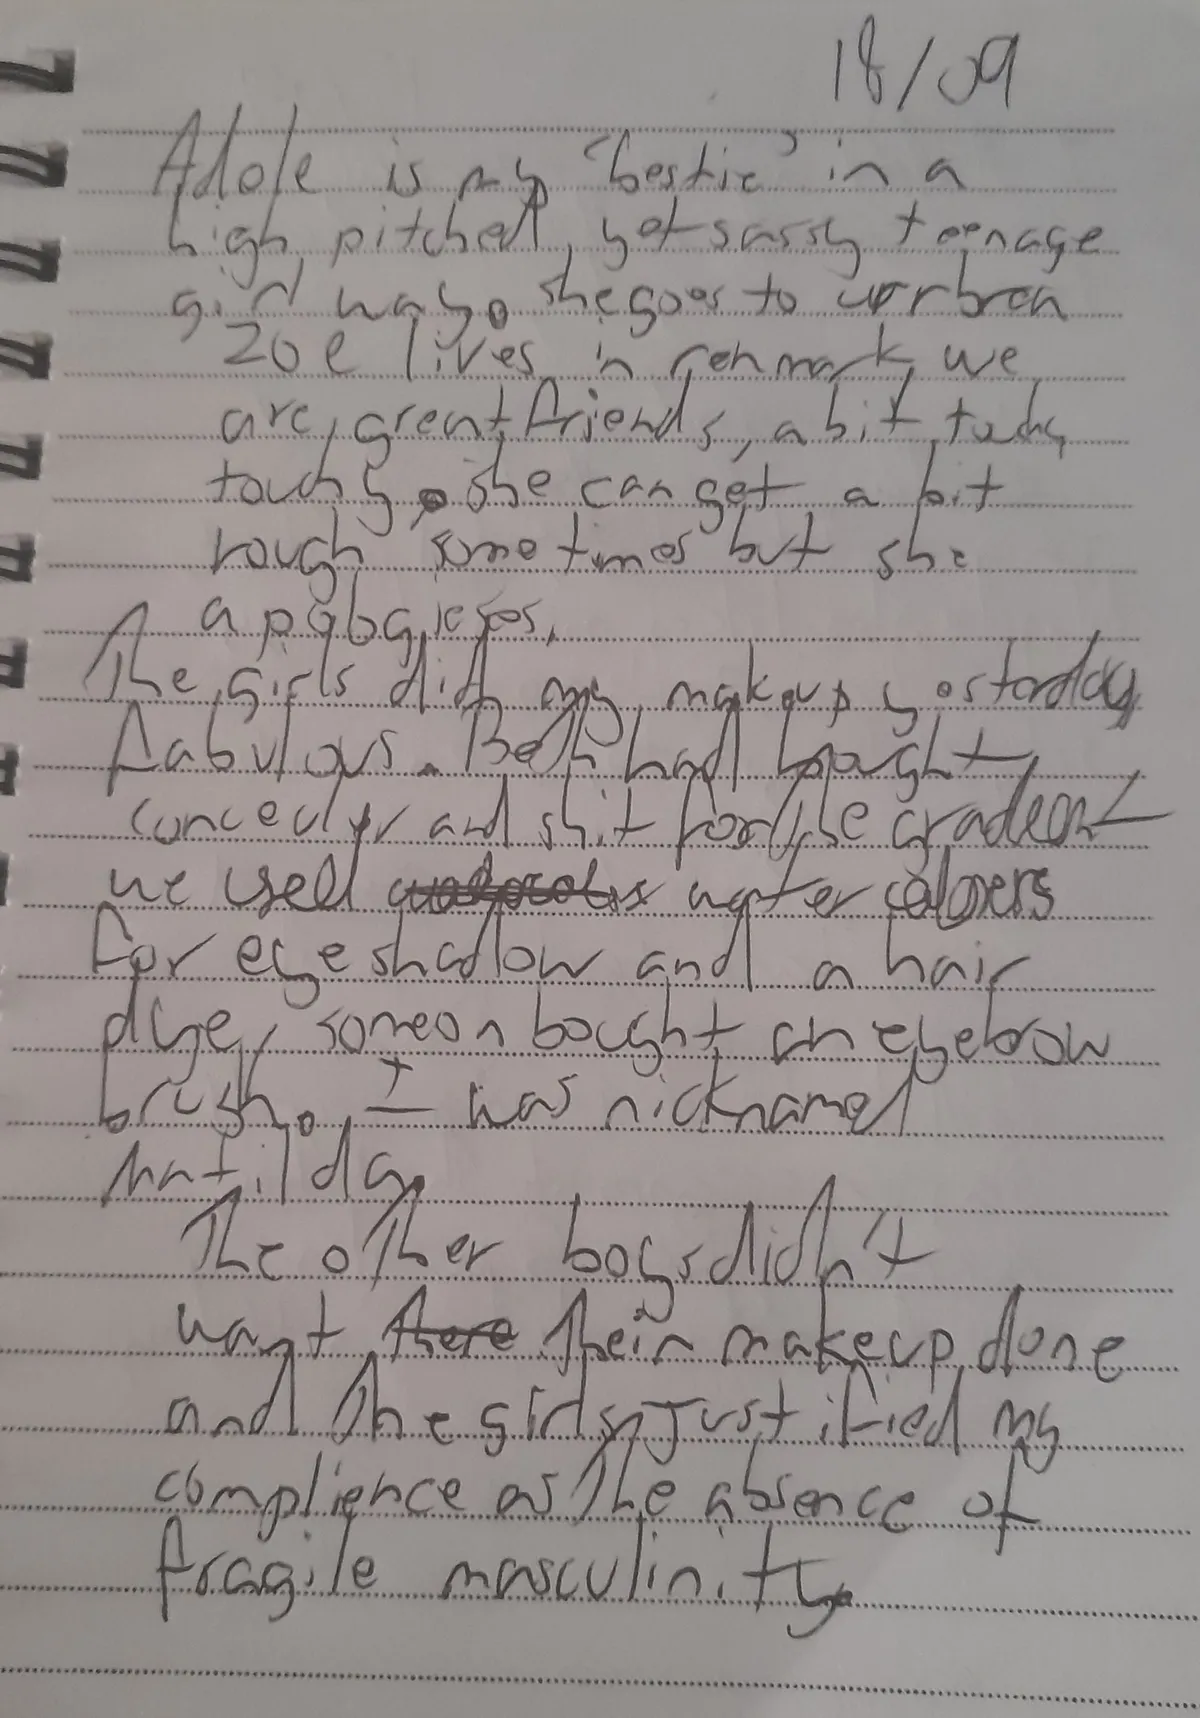 18/09
Adole is my "bestie" in a
high pitched, yet sassy teenage
girl way. she goes to urrbren
Zoe lives in renmark we
are great friends, a bit touchy
touchy, she can get a bit
rough sometimes but she
apologieses.
The girls did my makeup yesterday
fabulous. Beth had bought
and shit for the gradeent
we used water colours
for eyeshadow and a hair
dye, someon bought an eyebrow
brush. I was nicknamed
matilda.
The other boys didn't
want there their makeup done
and the girls justified my
complience as the absence of
fragile masculinity.